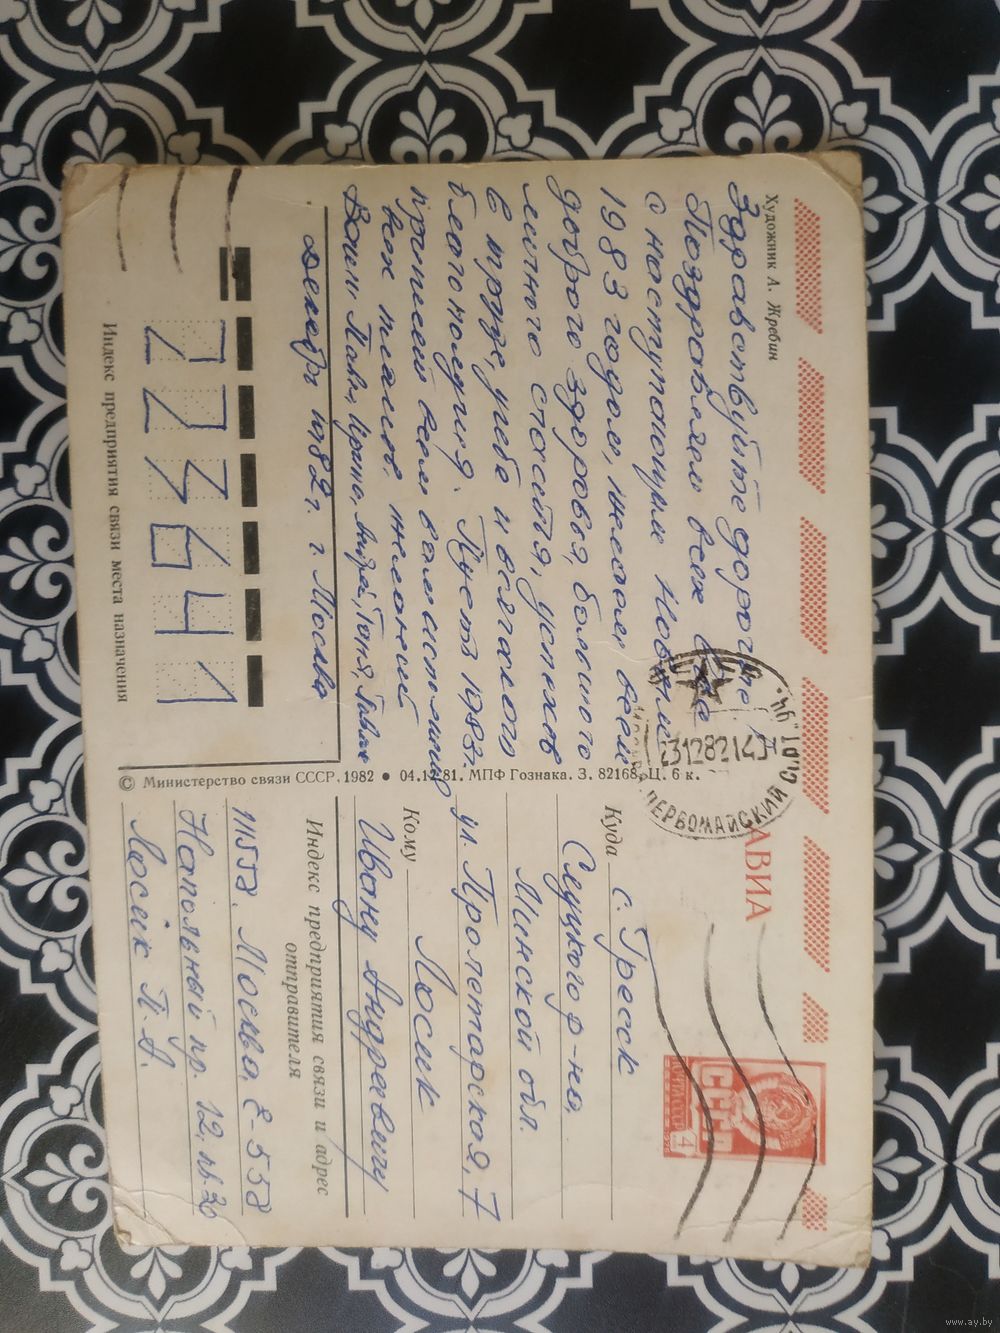 Художник А. Жребин
Здравствуйте дорогие
Поздравляем всех Вас
с наступающим Новым
1983 годом, желаем всем
доброго здоровья, большого
личного счастья, успехов
в труде, учебе и всяческого
благополучия. Пусть 1983г.
принесет всем вам исполнение
желаний
Ваши Павел, Ирина, Андрей, Таня, Павлик
декабрь 1982 г. г. Москва
223641
Индекс предприятия связи места назначения
© Министерство связи СССР, 1982 • 04.12.81. МПФ Гознака. З. 82168. Ц. 6 к.
АВИА
ПОЧТА СССР
4
СССР
ПЕРВОМАЙСКИЙ
Куда с. Гресск
Слуцкого р-на,
Минской обл.
ул. Пролетарская, 7
Кому Лосик
Ивану Андреевичу
Индекс предприятия связи и адрес
отправителя
Москва, Е-
Напольный пр. 12, кв.
Лосик П. А.
www.ay.by